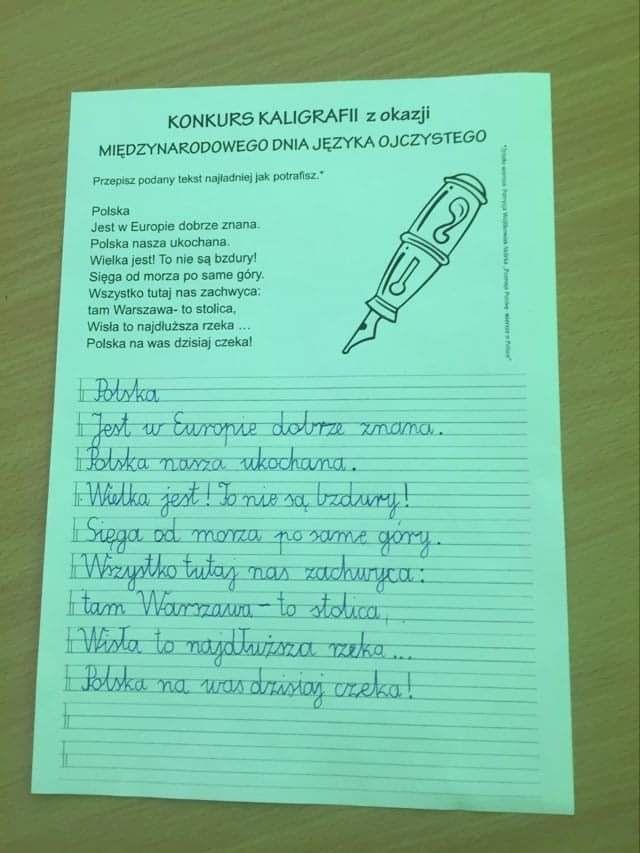 KONKURS KALIGRAFII z okazji
MIĘDZYNARODOWEGO DNIA JĘZYKA OJCZYSTEGO
Przepisz podany tekst najładniej jak potrafisz.*
Polska
Jest w Europie dobrze znana.
Polska nasza ukochana.
Wielka jest! To nie są bzdury!
Sięga od morza po same góry.
Wszystko tutaj nas zachwyca:
tam Warszawa- to stolica,
Wisła to najdłuższa rzeka ...
Polska na was dzisiaj czeka!
Polska
Jest w Europie dobrze znana.
Polska nasza ukochana.
Wielka jest! To nie są bzdury!
Sięga od morza po same góry.
Wszystko tutaj nas zachwyca:
tam Warszawa - to stolica,
Wisła to najdłuższa rzeka...
Polska na was dzisiaj czeka!